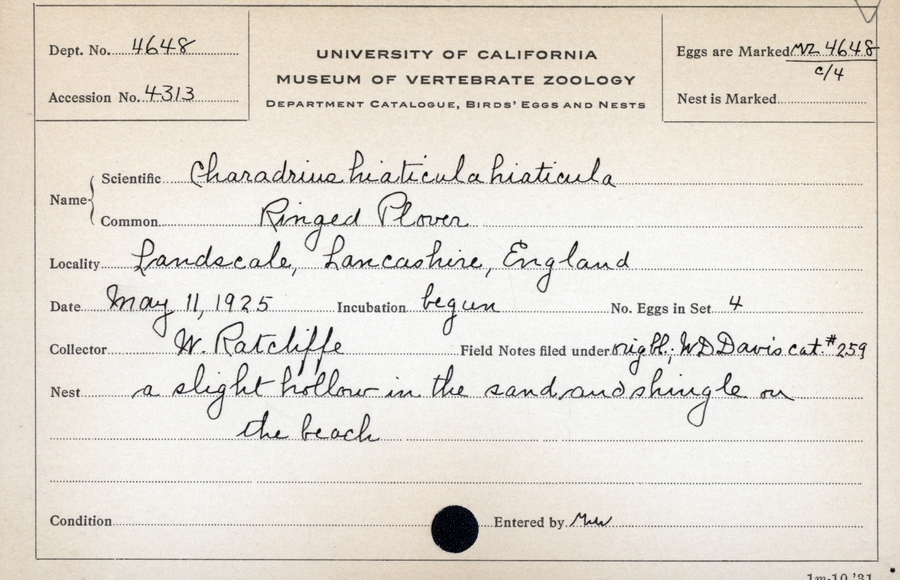 Dept. No. 4648
UNIVERSITY OF CALIFORNIA
MUSEUM OF VERTEBRATE ZOOLOGY
DEPARTMENT CATALOGUE, BIRDS' EGGS AND NESTS
Eggs are Marked MVZ 4648
c/4
Accession No. 4313
Nest is Marked
Name
Scientific Charadrius hiaticula hiaticula
Common Ringed Plover
Locality Landscale, Lancashire, England
Date May 11, 1925 Incubation begun No. Eggs in Set 4
Collector W. Ratcliffe Field Notes filed under orig bl.; WD Davis cat. #259
Nest a slight hollow in the sand and shingle on
the beach
Condition Entered by
1m-10,'31